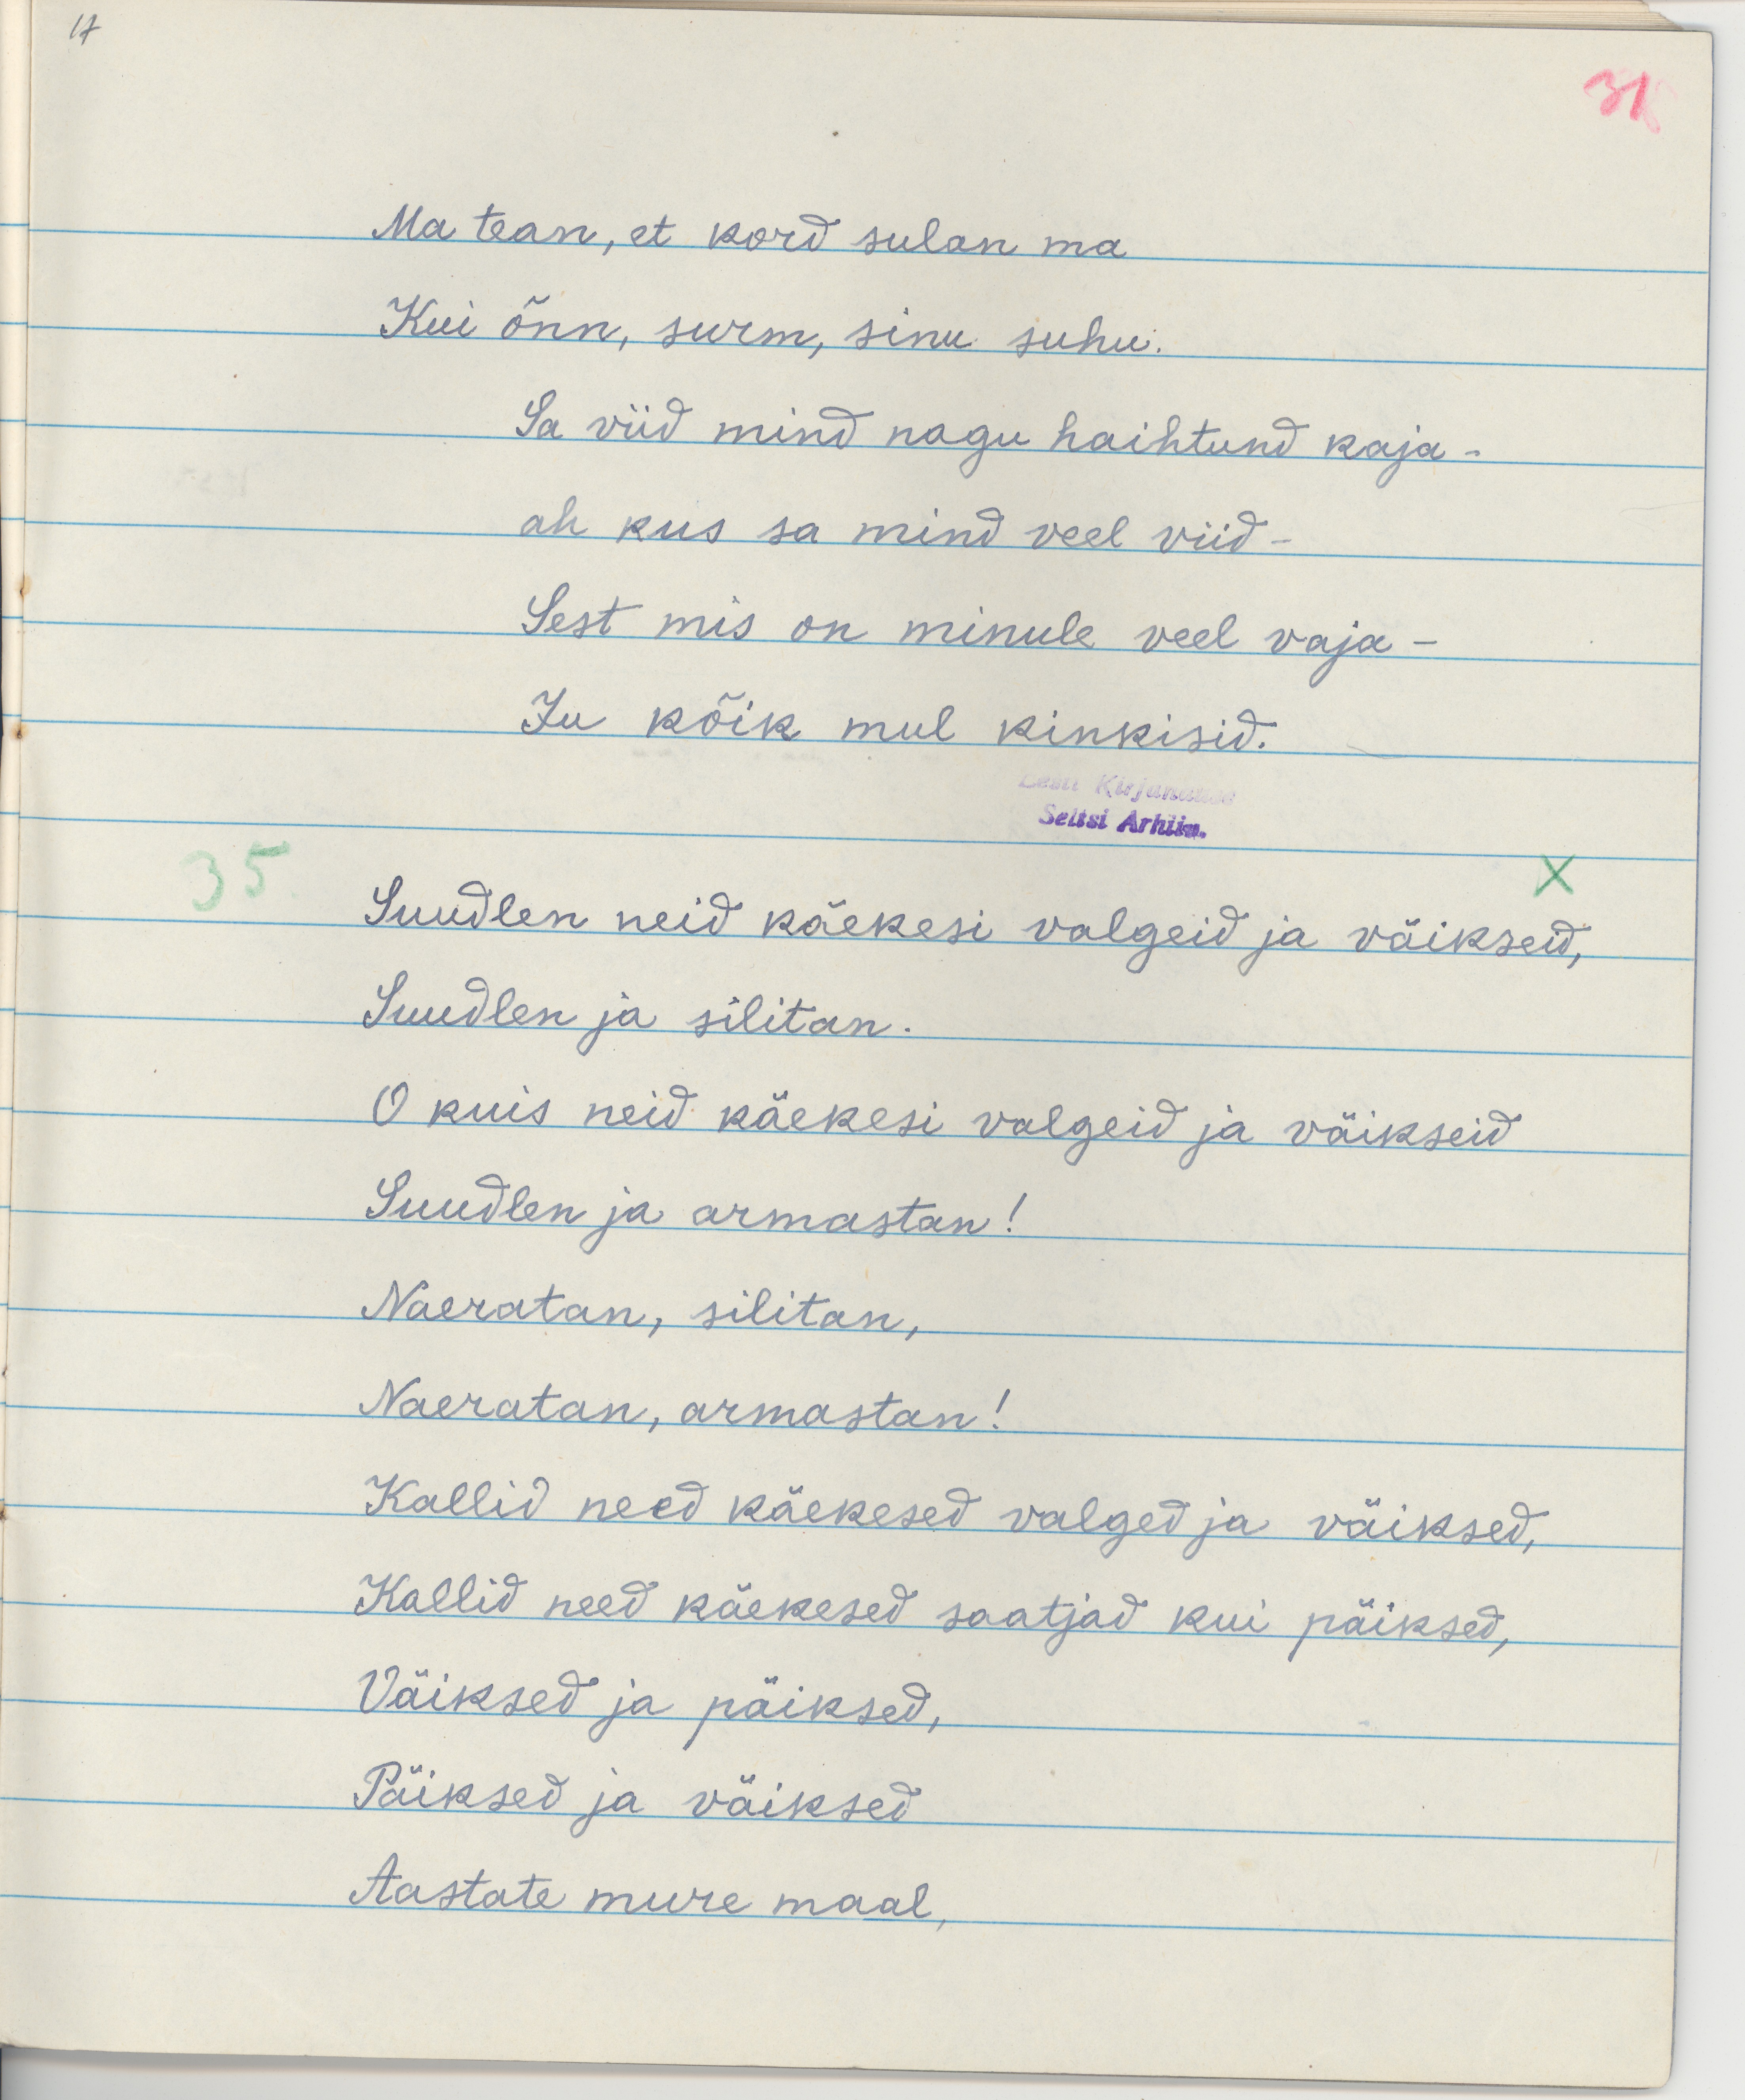 17
31
Ma tean, et kord sulan ma
Kui õnn, surm, sinu suhu.
Sa viid mind nagu haihtund kaja -
ah kus sa mind veel viid -
Sest mis on minule veel vaja -
Ju kõik mul kinkisid.
Eesti Kirjanduse
Seltsi Arhiiv.
35
X
Suudlen neid käekesi valgeid ja väikseid,
Suudlen ja silitan.
O kuis neid käekesi valgeid ja väikseid
Suudlen ja armastan!
Naeratan, silitan,
Naeratan, armastan!
Kallid need käekesed valged ja väiksed,
Kallid need käekesed saatjad kui päiksed,
Väiksed ja päiksed,
Päiksed ja väiksed
Aastate mure maal,